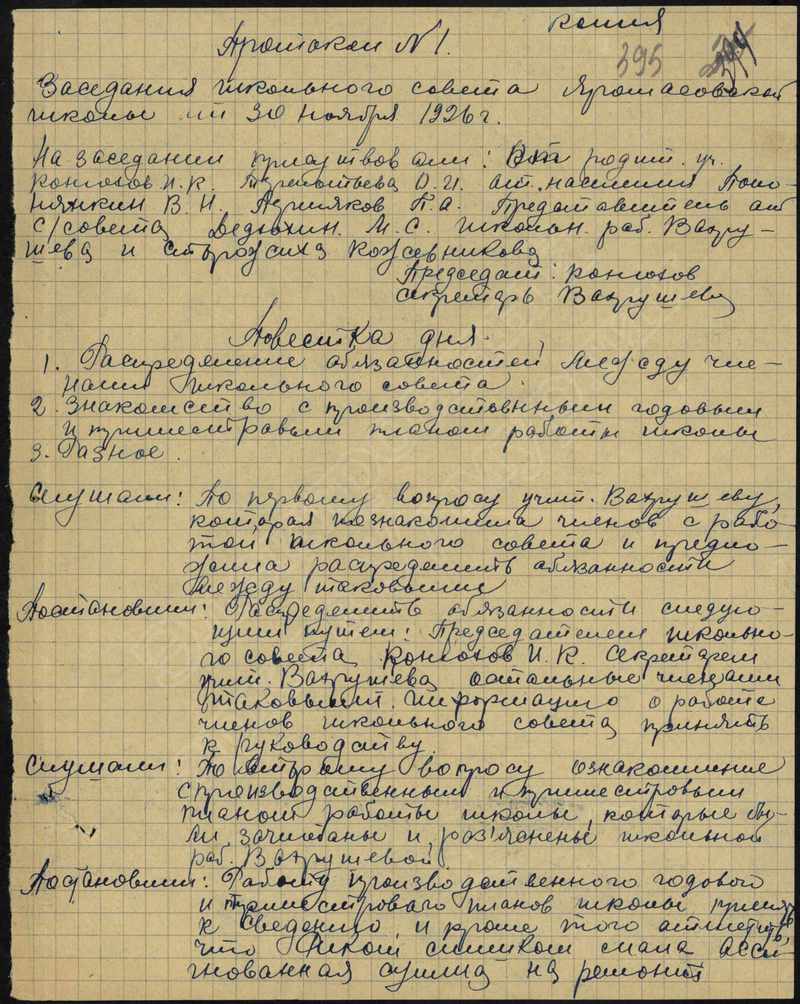 копия
Протокол №1.
395
Заседания школьного совета Яромасовской
школы от 30 ноября 1926 г.
На заседании присутствовали: от родит. уч.
Конюхов И.К. Терентьева О.И. от населения Поно-
в В.И. Лермяков П.А. Представитель от
с/совета Дедюхин М.С. школьн. раб. Вахру-
шева и сторожиха Кожевникова
Председат: Конюхов
секретарь Вахрушева
Повестка дня.
1. Распределение обязанностей между чле-
нами школьного совета.
2. Знакомство с производственным годовым
и триместровым планом работы школы
3. Разное.
Слушали: По первому вопросу учит. Вахрушеву,
которая познакомила членов с рабо-
той школьного совета и предло-
жила распределить обязанности
между таковыми
Постановили: Распределить обязанности следую-
щим путем: Председателем школьно-
го совета Конюхов И.К. Секретарем
учит. Вахрушева остальные членами
таковыми. Информацию о работе
членов школьного совета принять
к руководству.
Слушали: По второму вопросу ознакомление
с производственным и триместровым
планом работы школы, которые бы-
ли зачитаны и раз'яснены школьной
раб. Вахрушевой.
Постановили: Работу производственного годового
и триместроваго планов школы принять
к сведению, и кроме того отметить,
что Риком слишком мала асси-
гнованная сумма на ремонт